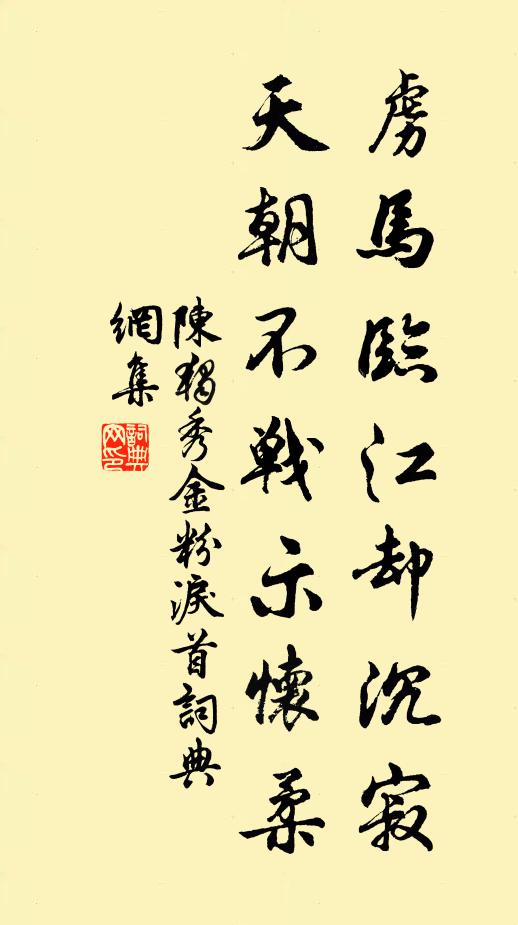 虜馬臨江却沉寂
天朝不戰示懷柔
陳獨秀金粉淚首詞典
網集
詞典網印